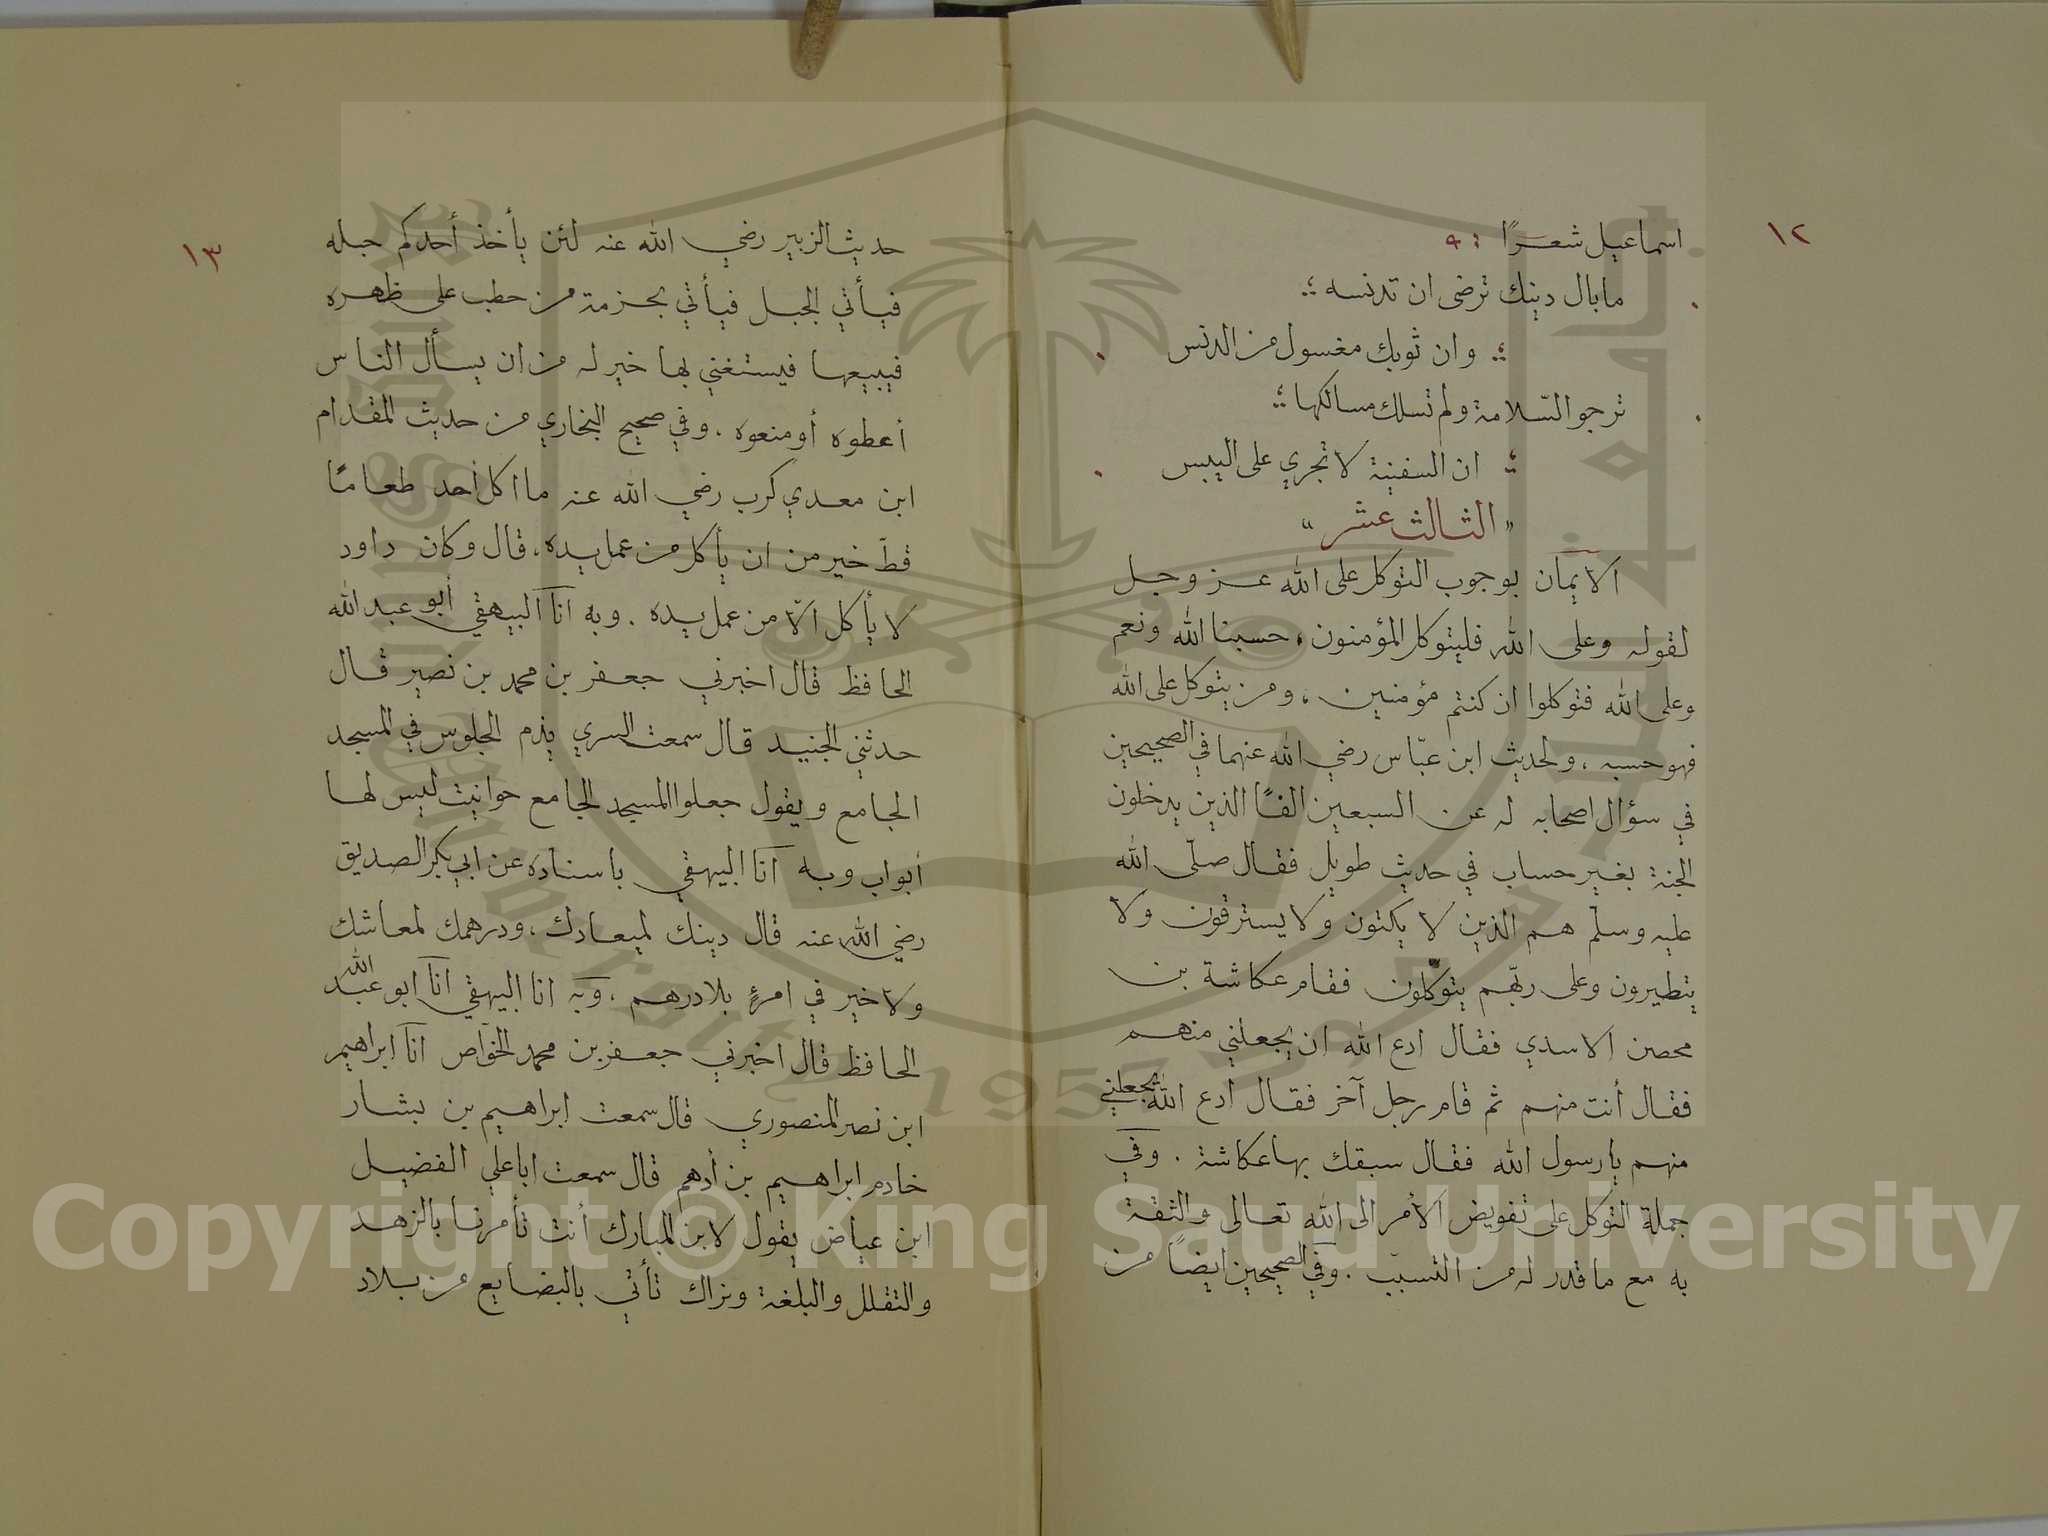 ١٢
اسماعيل شعرًا
مابال دينك ترضى ان تدنسه
وان ثوبك مغسول من الدنس
ترجو السّلامة ولم تسلك مسالكها
ان السفينة لا تجري على اليبس
" الثالث عشر "
الايمان بوجوب التوكل على الله عز وجل
لقوله وعلى الله فليتوكل المؤمنون، حسبنا الله ونعم
وعلى الله فتوكلوا ان كنتم مؤمنين، ومن يتوكل على الله
فهو حسبه، ولحديث ابن عبّاس رضي الله عنهما في الصحيحين
في سؤال اصحابه له عن السبعين الفًا الذين يدخلون
الجنة بغير حساب في حديث طويل فقال صلّى الله
عليه وسلّم هم الذين لا يكتون ولا يسترقون ولا
يتطيرون وعلى ربّهم يتوكّلون فقام عكاشة بن
محصن الاسدي فقال ادع الله ان يجعلني منهم
فقال أنت منهم ثم قام رجل آخر فقال ادع الله يجعلني
منهم يا رسول الله فقال سبقك بها عكاشة . وفي
جملة التوكل على تفويض الأمر الى الله تعالى والثقة
به مع ما قدر له من التسبب . وفي الصحيحين ايضاً من
١٣
حديث الزبير رضي الله عنه لئن يأخذ أحدكم حبله
فيأتي الجبل فيأتي بحزمة من حطب على ظهره
فيبيعها فيستغني بها خير له من ان يسأل الناس
أعطوه أو منعوه . وفي صحيح البخاري من حديث المقدام
ابن معدي كرب رضي الله عنه ما اكل أحد طعامًا
قطّ خير من ان يأكل من عمل يده، قال وكان داود
لا يأكل الّا من عمل يده . وبه انا البيهقي أبو عبد الله
الحافظ قال اخبرني جعفر بن محمد بن نصير قال
حدثني الجنيد قال سمعت السري يذم الجلوس في المسجد
الجامع ويقول جعلوا المسجد الجامع حوانيت ليس لها
أبواب وبه انا البيهقي باسناده عن ابي بكر الصديق
رضي الله عنه قال دينك لميعادك، ودرهمك لمعاشك
ولا خير في امرئٍ بلا درهم، وبه انا البيهقي انا ابو عبد الله
الحافظ قال اخبرني جعفر بن محمد الخواص انا ابراهيم
ابن نصر المنصوري قال سمعت ابراهيم بن بشار
خادم ابراهيم بن أدهم قال سمعت ابا علي الفضيل
ابن عياض يقول لابن المبارك أنت تأمرنا بالزهد
والتقلل والبلغة ونراك تأتي بالبضايع من بلاد
Copyright © King Saud University